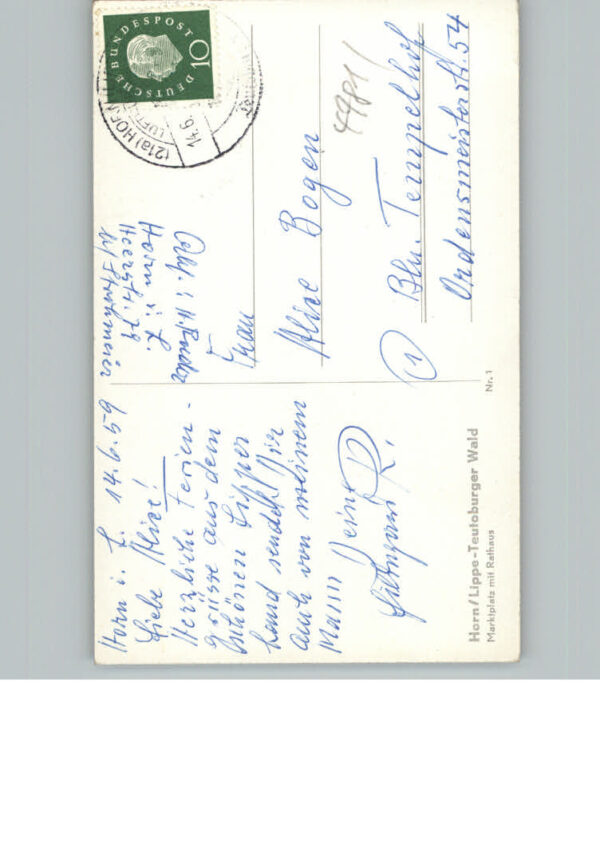 Horn i. L. 14.6.59
Liebe Alice!
Herzliche Ferien-
grüsse aus dem
schönen Lipper
Land sendet Dir
auch von meinem
Mann Deine
R.
Horn/Lippe-Teutoburger Wald
Marktplatz mit Rathaus
Nr. 1
DEUTSCHE BUNDESPOST
10
(21a) HOR
LUFTK
14.6.
Abs.: H.
Horn i. L.
Heerstr. 79
b/
4981/
Frau
Alice Bogen
(1) Bln. Tempelhof
Ordensmeisterstr. 54